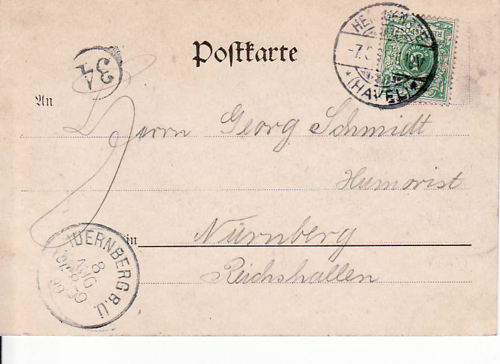 Postkarte
(HAVEL)
34
An
Herrn Georg Schmidt
Humorist
in Nürnberg
Reichshallen
NUERNBERG B.U.
8
AUG